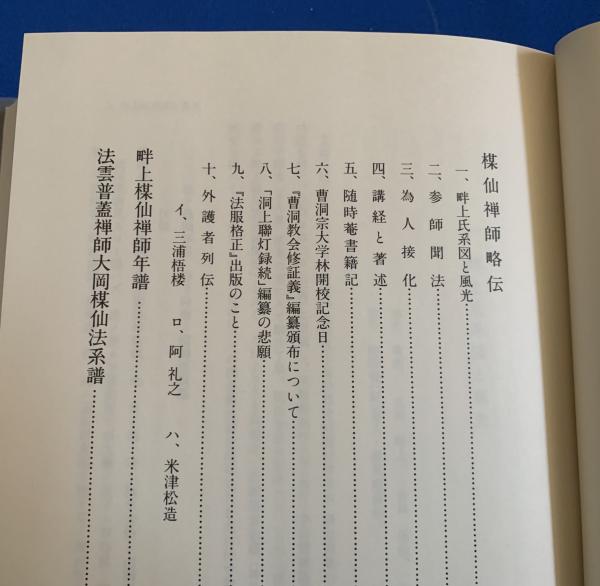 楳仙禅師略伝
一、畔上氏系図と風光
二、参師聞法
三、為人接化
四、講経と著述
五、随時菴書籍記
六、曹洞宗大学林開校記念日
七、『曹洞教会修証義』編纂頒布について
八、「洞上聯灯録続」編纂の悲願
九、『法服格正』出版のこと
十、外護者列伝
イ、三浦梧楼　ロ、阿礼之　ハ、米津松造
畔上楳仙禅師年譜
法雲普蓋禅師大岡楳仙法系譜